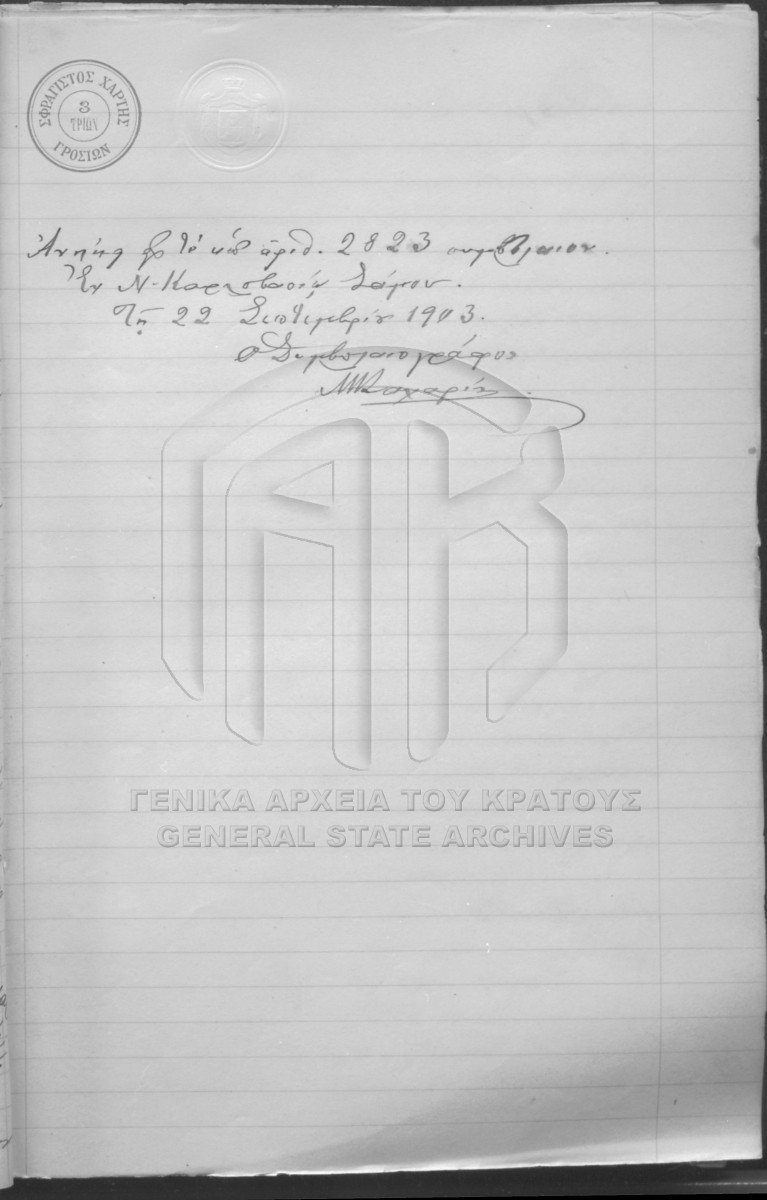 ΣΦΡΑΓΙΣΤΟΣ ΧΑΡΤΗΣ
3
ΤΡΙΩΝ
ΓΡΟΣΙΩΝ
Ἀνήκει εἰς τὸ ὑπ' ἀριθ. 2823 συμβόλαιον.
Ἐν Ν. Καρλοβασίῳ Σάμου.
Τῇ 22 Σεπτεμβρίου 1903.
Ὁ Συμβολαιογράφος
ΓΕΝΙΚΑ ΑΡΧΕΙΑ ΤΟΥ ΚΡΑΤΟΥΣ
GENERAL STATE ARCHIVES